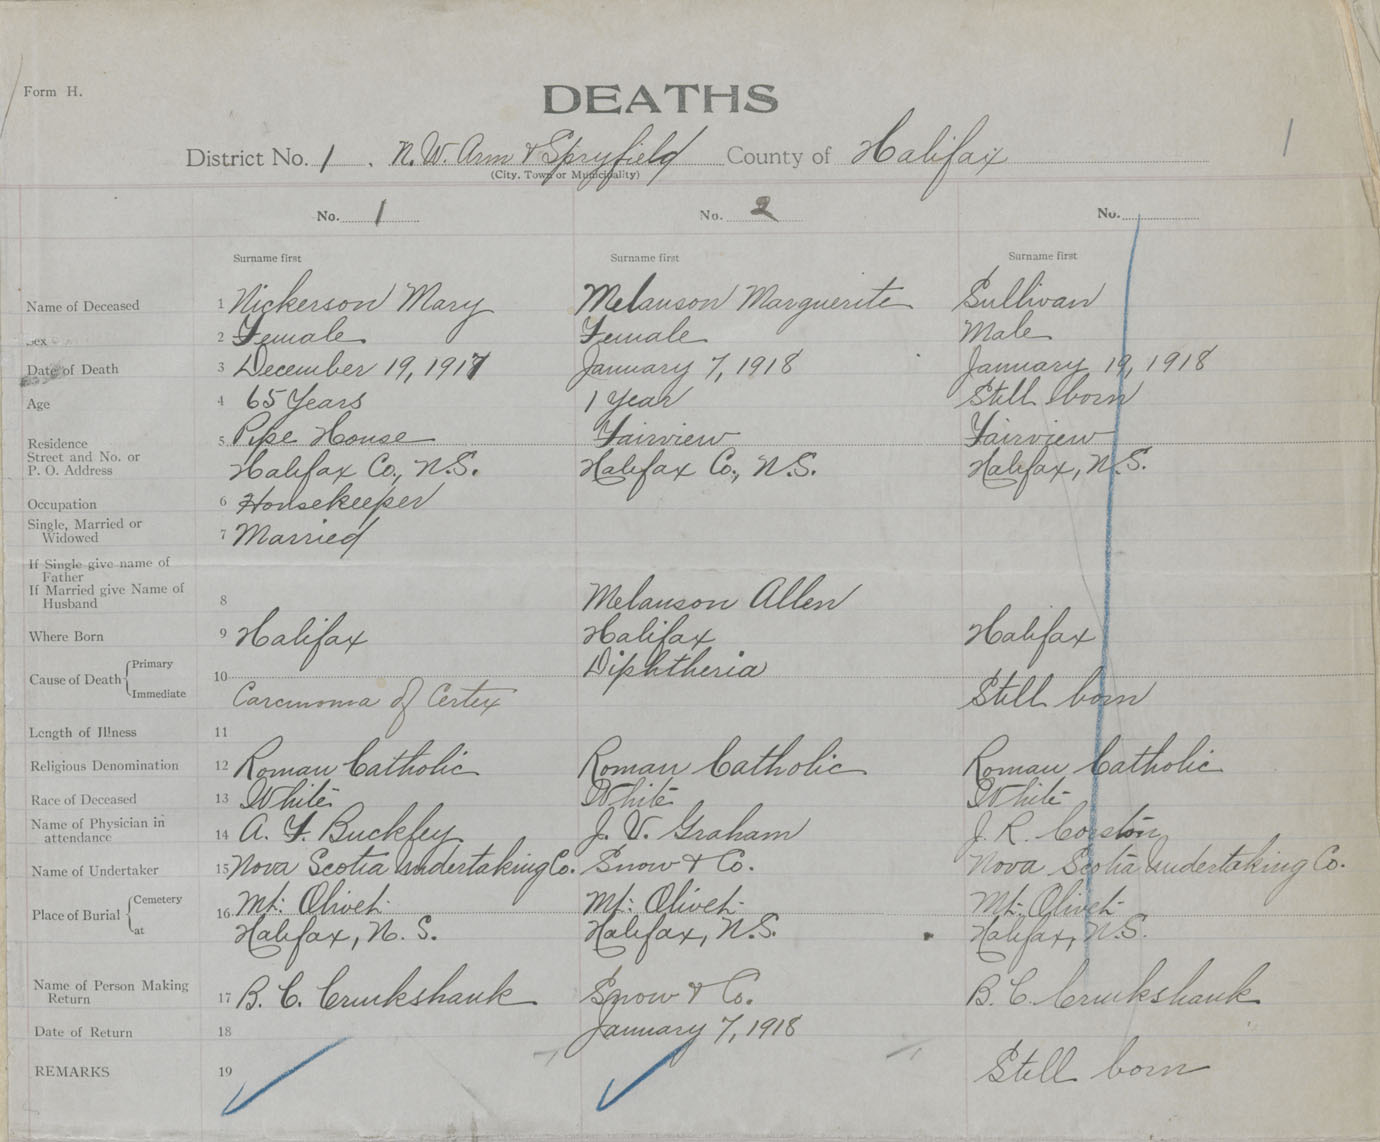 Form H.
DEATHS
District No. 1. N. W. Arm & Spryfield County of Halifax
(City, Town or Municipality)
1
No. 1 No. 2 No.
Surname first Surname first Surname first
Name of Deceased 1 Nickerson Mary Melanson Marguerite Sullivan
Sex 2 Female Female Male
Date of Death 3 December 19, 1917 January 7, 1918 January 19, 1918
Age 4 65 Years 1 Year Still born
Residence 5 Pipe House Fairview Fairview
Street and No. or
P. O. Address Halifax Co., N.S. Halifax Co., N.S. Halifax, N.S.
Occupation 6 Housekeeper
Single, Married or
Widowed 7 Married
If Single give name of
Father
If Married give Name of
Husband 8 Melanson Allen
Where Born 9 Halifax Halifax Halifax
Cause of Death Primary 10 Diphtheria
Immediate Carcinoma of Certex Still born
Length of Illness 11
Religious Denomination 12 Roman Catholic Roman Catholic Roman Catholic
Race of Deceased 13 White White White
Name of Physician in
attendance 14 A. F. Buckley J. V. Graham J. R. Corston
Name of Undertaker 15 Nova Scotia Undertaking Co. Snow & Co. Nova Scotia Undertaking Co.
Place of Burial Cemetery 16 Mt. Olivet Mt. Olivet Mt. Olivet
at Halifax, N.S. Halifax, N.S. Halifax, N.S.
Name of Person Making
Return 17 B. C. Cruikshank Snow & Co. B. C. Cruikshank
Date of Return 18 January 7, 1918
REMARKS 19 Still born